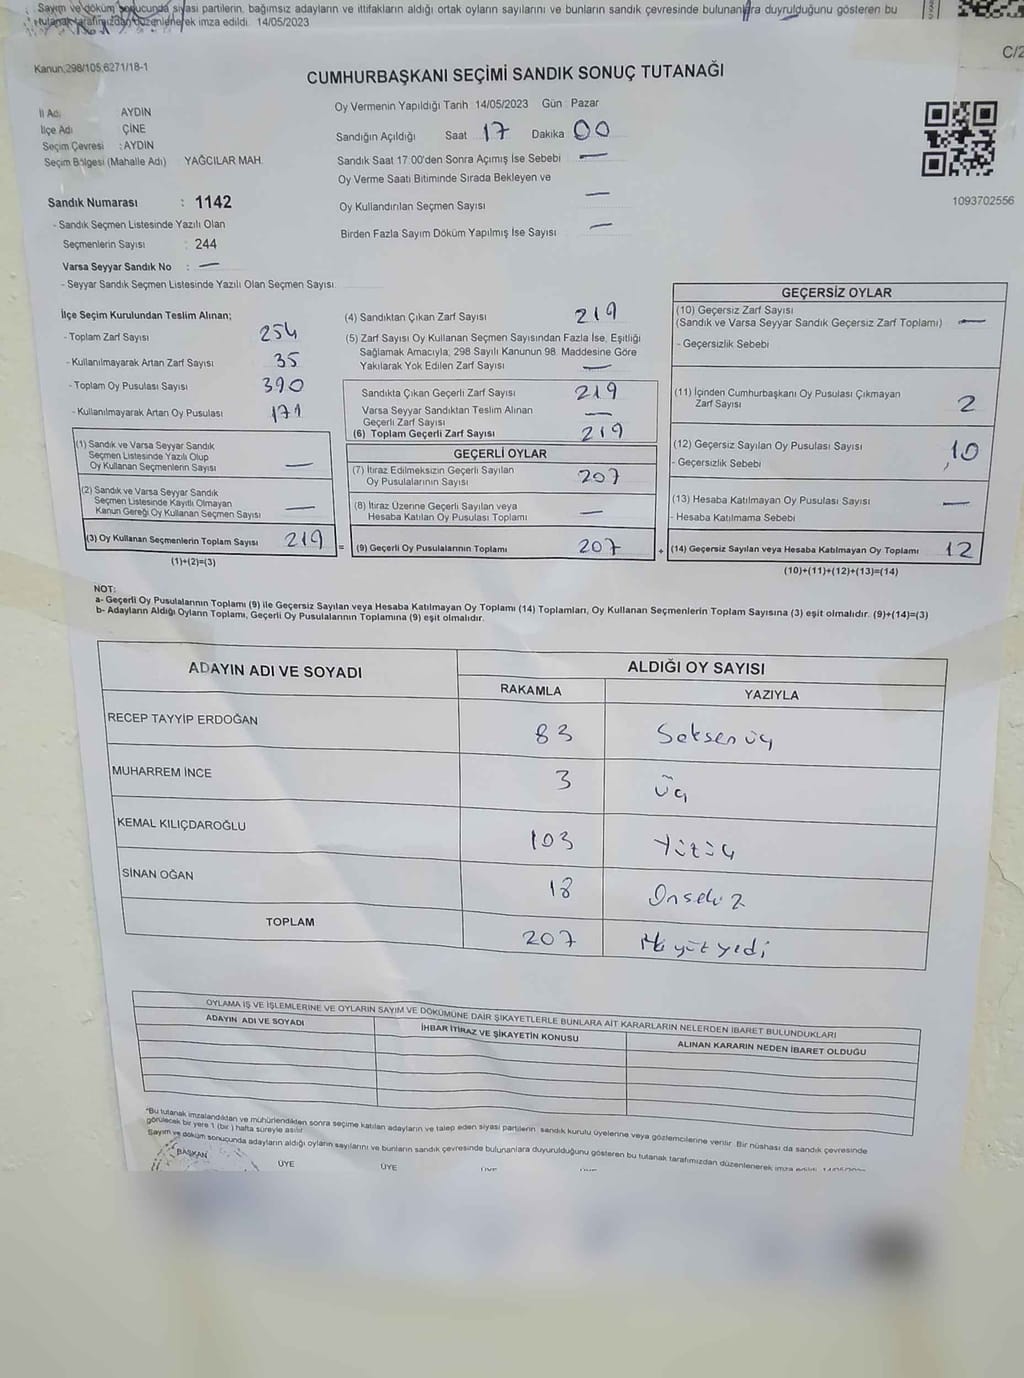 Sayım ve döküm sonucunda siyasi partilerin, bağımsız adayların ve ittifakların aldığı ortak oyların sayılarını ve bunların sandık çevresinde bulunanlara duyurulduğunu gösteren bu
tutanak tarafımızdan düzenlenerek imza edildi. 14/05/2023
C/2
Kanun,298/105,6271/18-1
CUMHURBAŞKANI SEÇİMİ SANDIK SONUÇ TUTANAĞI
İl Adı AYDIN
İlçe Adı ÇİNE
Seçim Çevresi : AYDIN
Seçim Bölgesi (Mahalle Adı) YAĞCILAR MAH.
Oy Vermenin Yapıldığı Tarih 14/05/2023 Gün Pazar
Sandığın Açıldığı Saat 17 Dakika 00
Sandık Saat 17:00'den Sonra Açımış İse Sebebi —
Oy Verme Saati Bitiminde Sırada Bekleyen ve
Oy Kullandırılan Seçmen Sayısı —
Birden Fazla Sayım Döküm Yapılmış İse Sayısı —
1093702556
Sandık Numarası : 1142
- Sandık Seçmen Listesinde Yazılı Olan
Seçmenlerin Sayısı : 244
Varsa Seyyar Sandık No : —
- Seyyar Sandık Seçmen Listesinde Yazılı Olan Seçmen Sayısı
İlçe Seçim Kurulundan Teslim Alınan;
- Toplam Zarf Sayısı 254
- Kullanılmayarak Artan Zarf Sayısı 35
- Toplam Oy Pusulası Sayısı 390
- Kullanılmayarak Artan Oy Pusulası 171
(1) Sandık ve Varsa Seyyar Sandık
Seçmen Listesinde Yazılı Olup
Oy Kullanan Seçmenlerin Sayısı —
(2) Sandık ve Varsa Seyyar Sandık
Seçmen Listesinde Kayıtlı Olmayan
Kanun Gereği Oy Kullanan Seçmen Sayısı —
(3) Oy Kullanan Seçmenlerin Toplam Sayısı 219
(1)+(2)=(3)
(4) Sandıktan Çıkan Zarf Sayısı 219
(5) Zarf Sayısı Oy Kullanan Seçmen Sayısından Fazla İse, Eşitliği
Sağlamak Amacıyla; 298 Sayılı Kanunun 98. Maddesine Göre
Yakılarak Yok Edilen Zarf Sayısı —
Sandıkta Çıkan Geçerli Zarf Sayısı 219
Varsa Seyyar Sandıktan Teslim Alınan
Geçerli Zarf Sayısı —
(6) Toplam Geçerli Zarf Sayısı 219
GEÇERLİ OYLAR
(7) İtiraz Edilmeksizin Geçerli Sayılan
Oy Pusulalarının Sayısı 207
(8) İtiraz Üzerine Geçerli Sayılan veya
Hesaba Katılan Oy Pusulası Toplamı —
= (9) Geçerli Oy Pusulalarının Toplamı 207
GEÇERSİZ OYLAR
(10) Geçersiz Zarf Sayısı
(Sandık ve Varsa Seyyar Sandık Geçersiz Zarf Toplamı) —
- Geçersizlik Sebebi
(11) İçinden Cumhurbaşkanı Oy Pusulası Çıkmayan
Zarf Sayısı 2
(12) Geçersiz Sayılan Oy Pusulası Sayısı 10
- Geçersizlik Sebebi
(13) Hesaba Katılmayan Oy Pusulası Sayısı —
- Hesaba Katılmama Sebebi
+ (14) Geçersiz Sayılan veya Hesaba Katılmayan Oy Toplamı 12
(10)+(11)+(12)+(13)=(14)
NOT:
a- Geçerli Oy Pusulalarının Toplamı (9) ile Geçersiz Sayılan veya Hesaba Katılmayan Oy Toplamı (14) Toplamları, Oy Kullanan Seçmenlerin Toplam Sayısına (3) eşit olmalıdır. (9)+(14)=(3)
b- Adayların Aldığı Oyların Toplamı, Geçerli Oy Pusulalarının Toplamına (9) eşit olmalıdır.
ADAYIN ADI VE SOYADI ALDIĞI OY SAYISI
RAKAMLA YAZIYLA
RECEP TAYYİP ERDOĞAN 83 Seksen üç
MUHARREM İNCE 3 üç
KEMAL KILIÇDAROĞLU 103 Yüzüç
SİNAN OĞAN 18 Onsekiz
TOPLAM 207 İkiyüzyedi
OYLAMA İŞ VE İŞLEMLERİNE VE OYLARIN SAYIM VE DÖKÜMÜNE DAİR ŞİKAYETLERLE BUNLARA AİT KARARLARIN NELERDEN İBARET BULUNDUKLARI
ADAYIN ADI VE SOYADI İHBAR İTİRAZ VE ŞİKAYETİN KONUSU ALINAN KARARIN NEDEN İBARET OLDUĞU
*Bu tutanak imzalandıktan ve mühürlendikten sonra seçime katılan adayların ve talep eden siyasi partilerin, sandık kurulu üyelerine veya gözlemcilerine verilir. Bir nüshası da sandık çevresinde
görülecek bir yere 1 (bir) hafta süreyle asılır.
Sayım ve döküm sonucunda adayların aldığı oyların sayılarını ve bunların sandık çevresinde bulunanlara duyurulduğunu gösteren bu tutanak tarafımızdan düzenlenerek imza edildi.
BAŞKAN ÜYE ÜYE